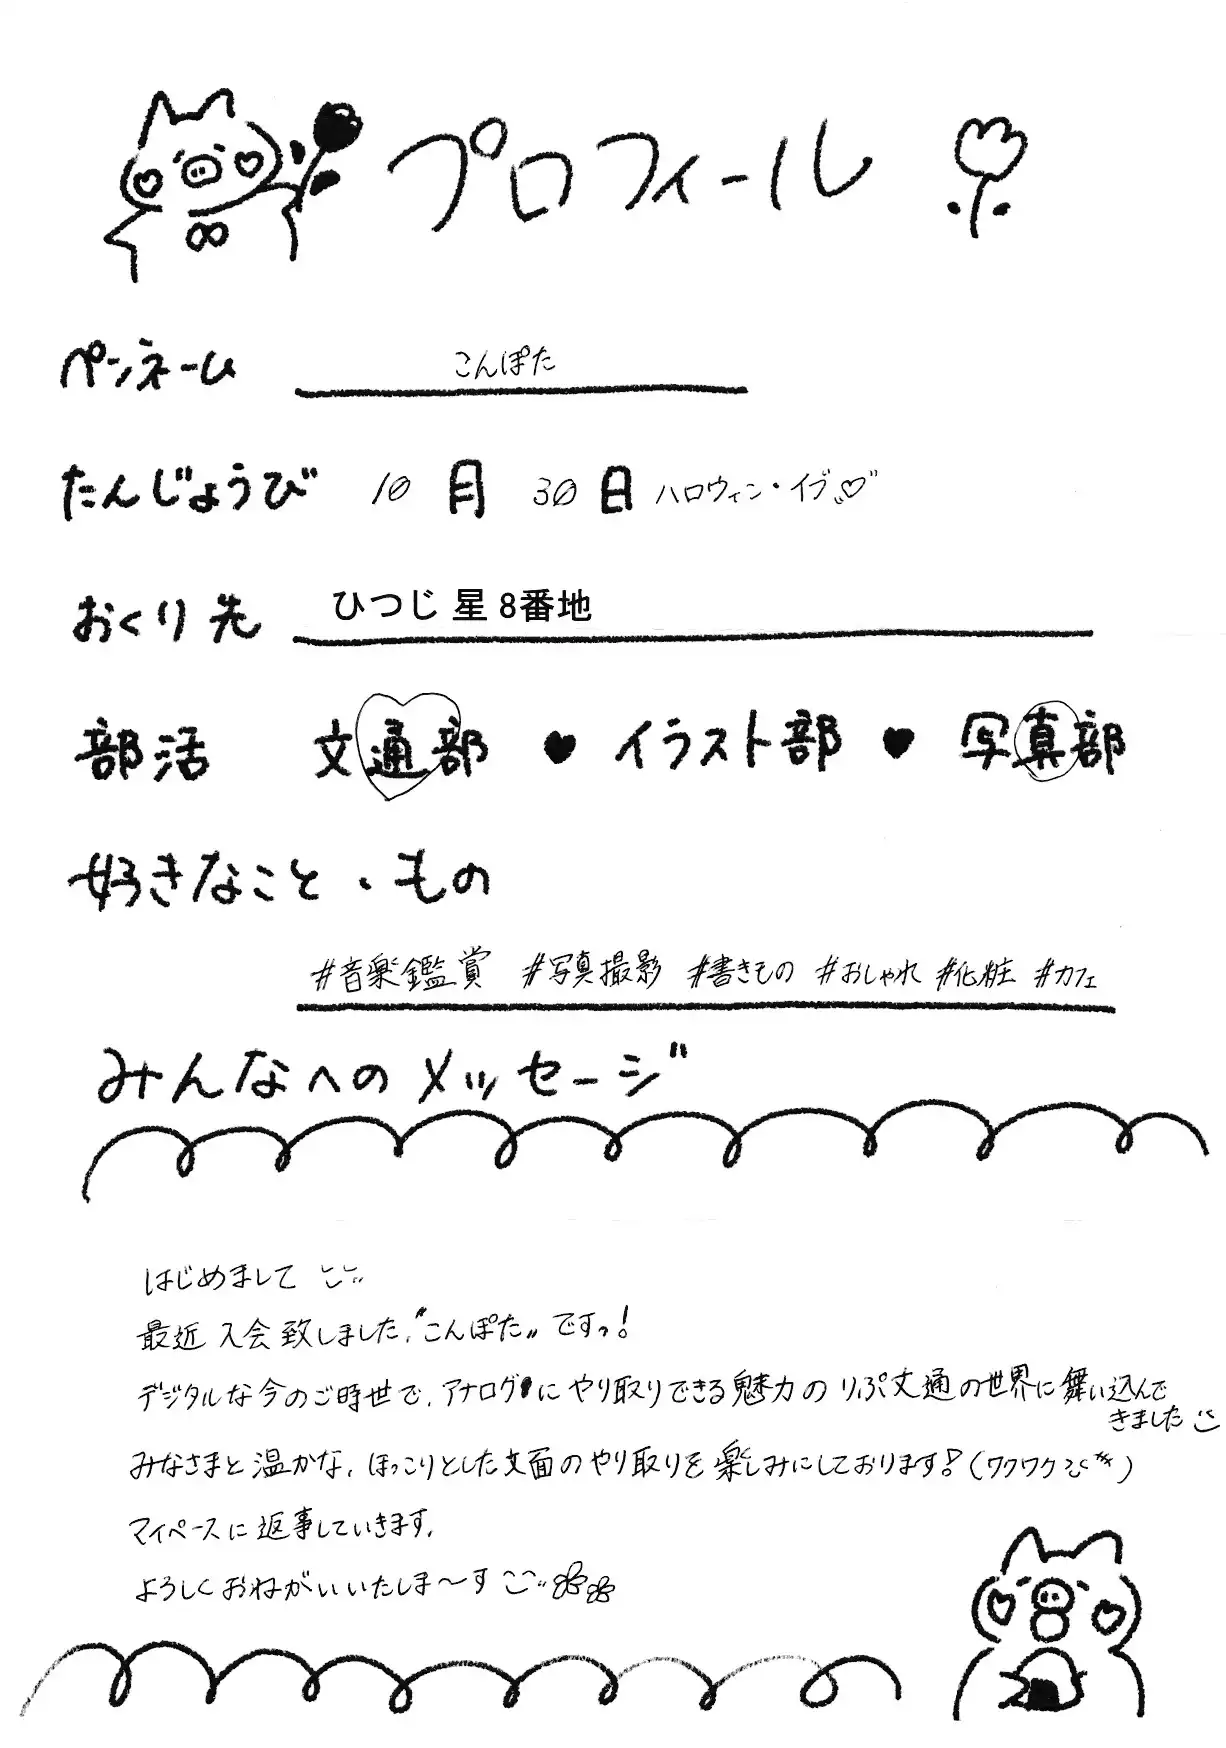 プロフィール
ペンネーム こんぽた
たんじょうび 10月 30日 ハロウィン・イブ♡
おくり先 ひつじ 星 8番地
部活 文通部 ♥ イラスト部 ♥ 写真部
好きなこと・もの
#音楽鑑賞 #写真撮影 #書きもの #おしゃれ #化粧 #カフェ
みんなへのメッセージ
はじめまして
最近 入会致しました、“こんぽた„ ですっ!
デジタルな今のご時世で、アナログにやり取りできる魅力のりぷ文通の世界に舞い込んで
きました
みなさまと温かな、ほっこりとした文面のやり取りを楽しみにしております!(ワクワク)
マイペースに返事していきます、
よろしくおねがいいたしま〜す